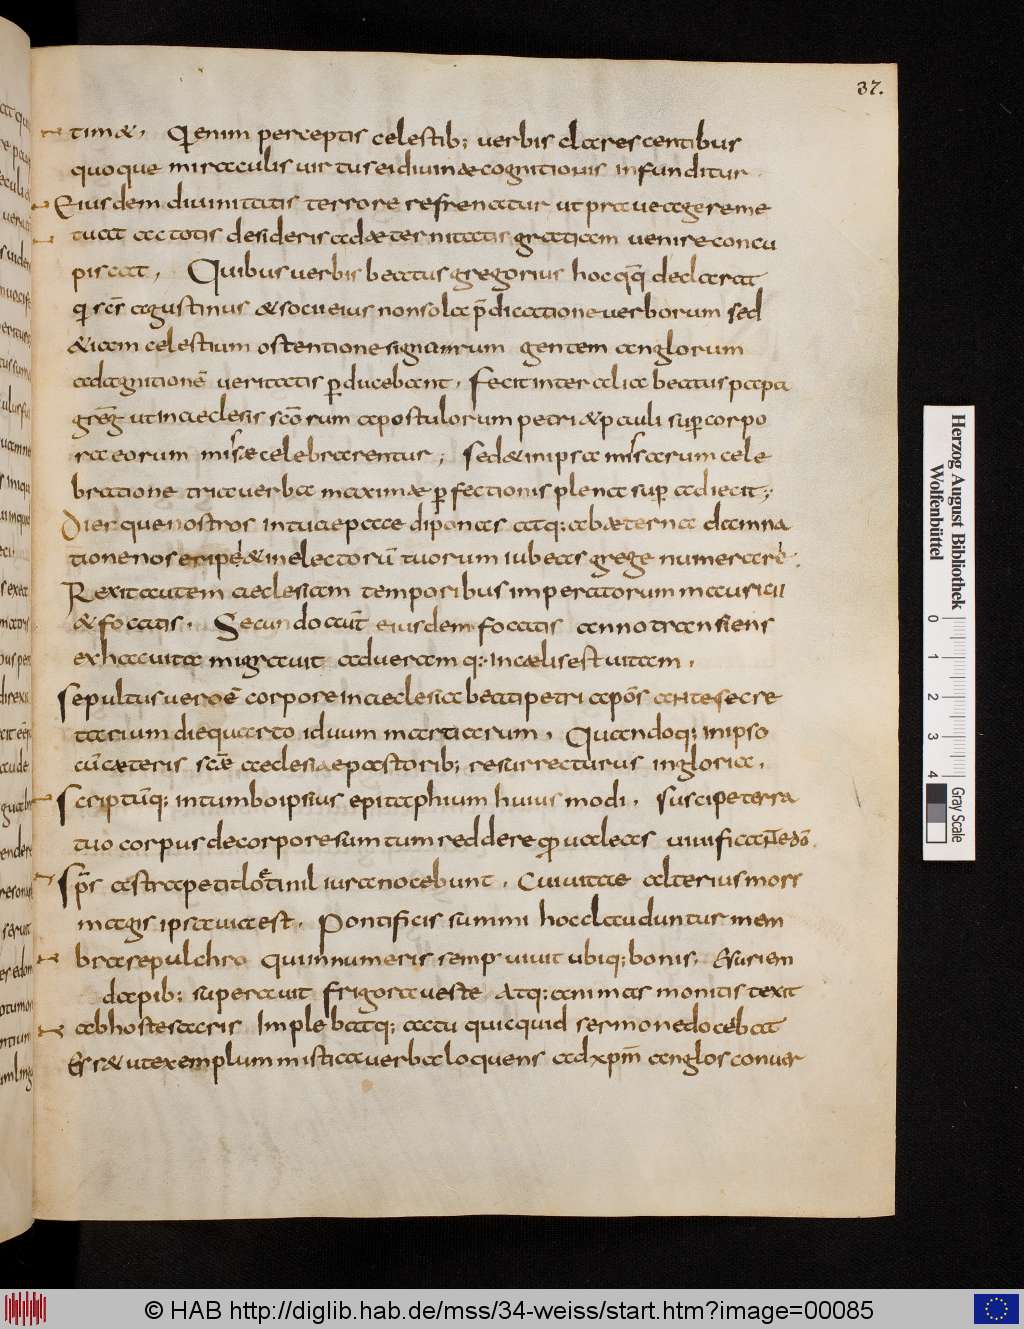 37.
tim&. Qi enim perceptis celestib; verbis clarescentibus
quoque miraculis virtus ei divinae cognitionis infunditur
Eiusdem divinitatis terrore refrenatur ut prave agere me
tuat ac totis desideris ad aeternitatis gratiam venire concu
piscat, Quibus verbis beatus gregorius hoc q̄q̄ declarat
qi scs̄ agustinus & socii eius non sola p̄dicatione verborum sed
&iam celestium ostentione signarum gentem anglorum
ad agnitionē veritatis p̄ducebant. Fecit inter alia beatus papa
grēg ut in aeclesis scōrum apostulorum petri & pauli sup corpo
ra eorum misse celebrarentur; sed & in ipsa missarum cele
bratione tria verba maximae pfectionis plena sup adiecit;
Dierque nostros in tua pace diponas atq; ab aeterna damna
tione nos eripe & in electorū tuorum iubeas grege numerare.
Rexit autem aeclesiam temporibus imperatorum mauricii
& focatis. Secundo aūt eiusdem focatis anno transiens
ex hac vita migravit ad veram q; in caelis est vitam.
Sepultus vero ē corpore in aeclesia beati petri apōs ante secre
tarium die quarto iduum martiarum. Quandoq; in ipso
cū caeteris scāe aeclesiae pastorib; resurrecturus in gloria.
Scriptūq; in tumbo ipsius epitaphium huius modi. Suscipe terra
tuo corpus de corpore sumtum reddere q valeas vivificante dō.
Sp̄s astra petit l&i nil iura nocebunt. Cui vitae alterius mors
magis ipsa via est. Pontificis summi hoc clauduntur mem
bra sepulchro Qui innumeris semp vivit ubiq; bonis. Esuriem
dapib; superavit frigora veste Atq; animas monitis texit
ab hoste sacris Implebatq; actu quicquid sermone docebat
Ess& ut exemplum mistica verba loquens ad xpm̄ anglos conver
Herzog August Bibliothek
Wolfenbüttel
0 1 2 3 4
Gray Scale
© HAB http://diglib.hab.de/mss/34-weiss/start.htm?image=00085